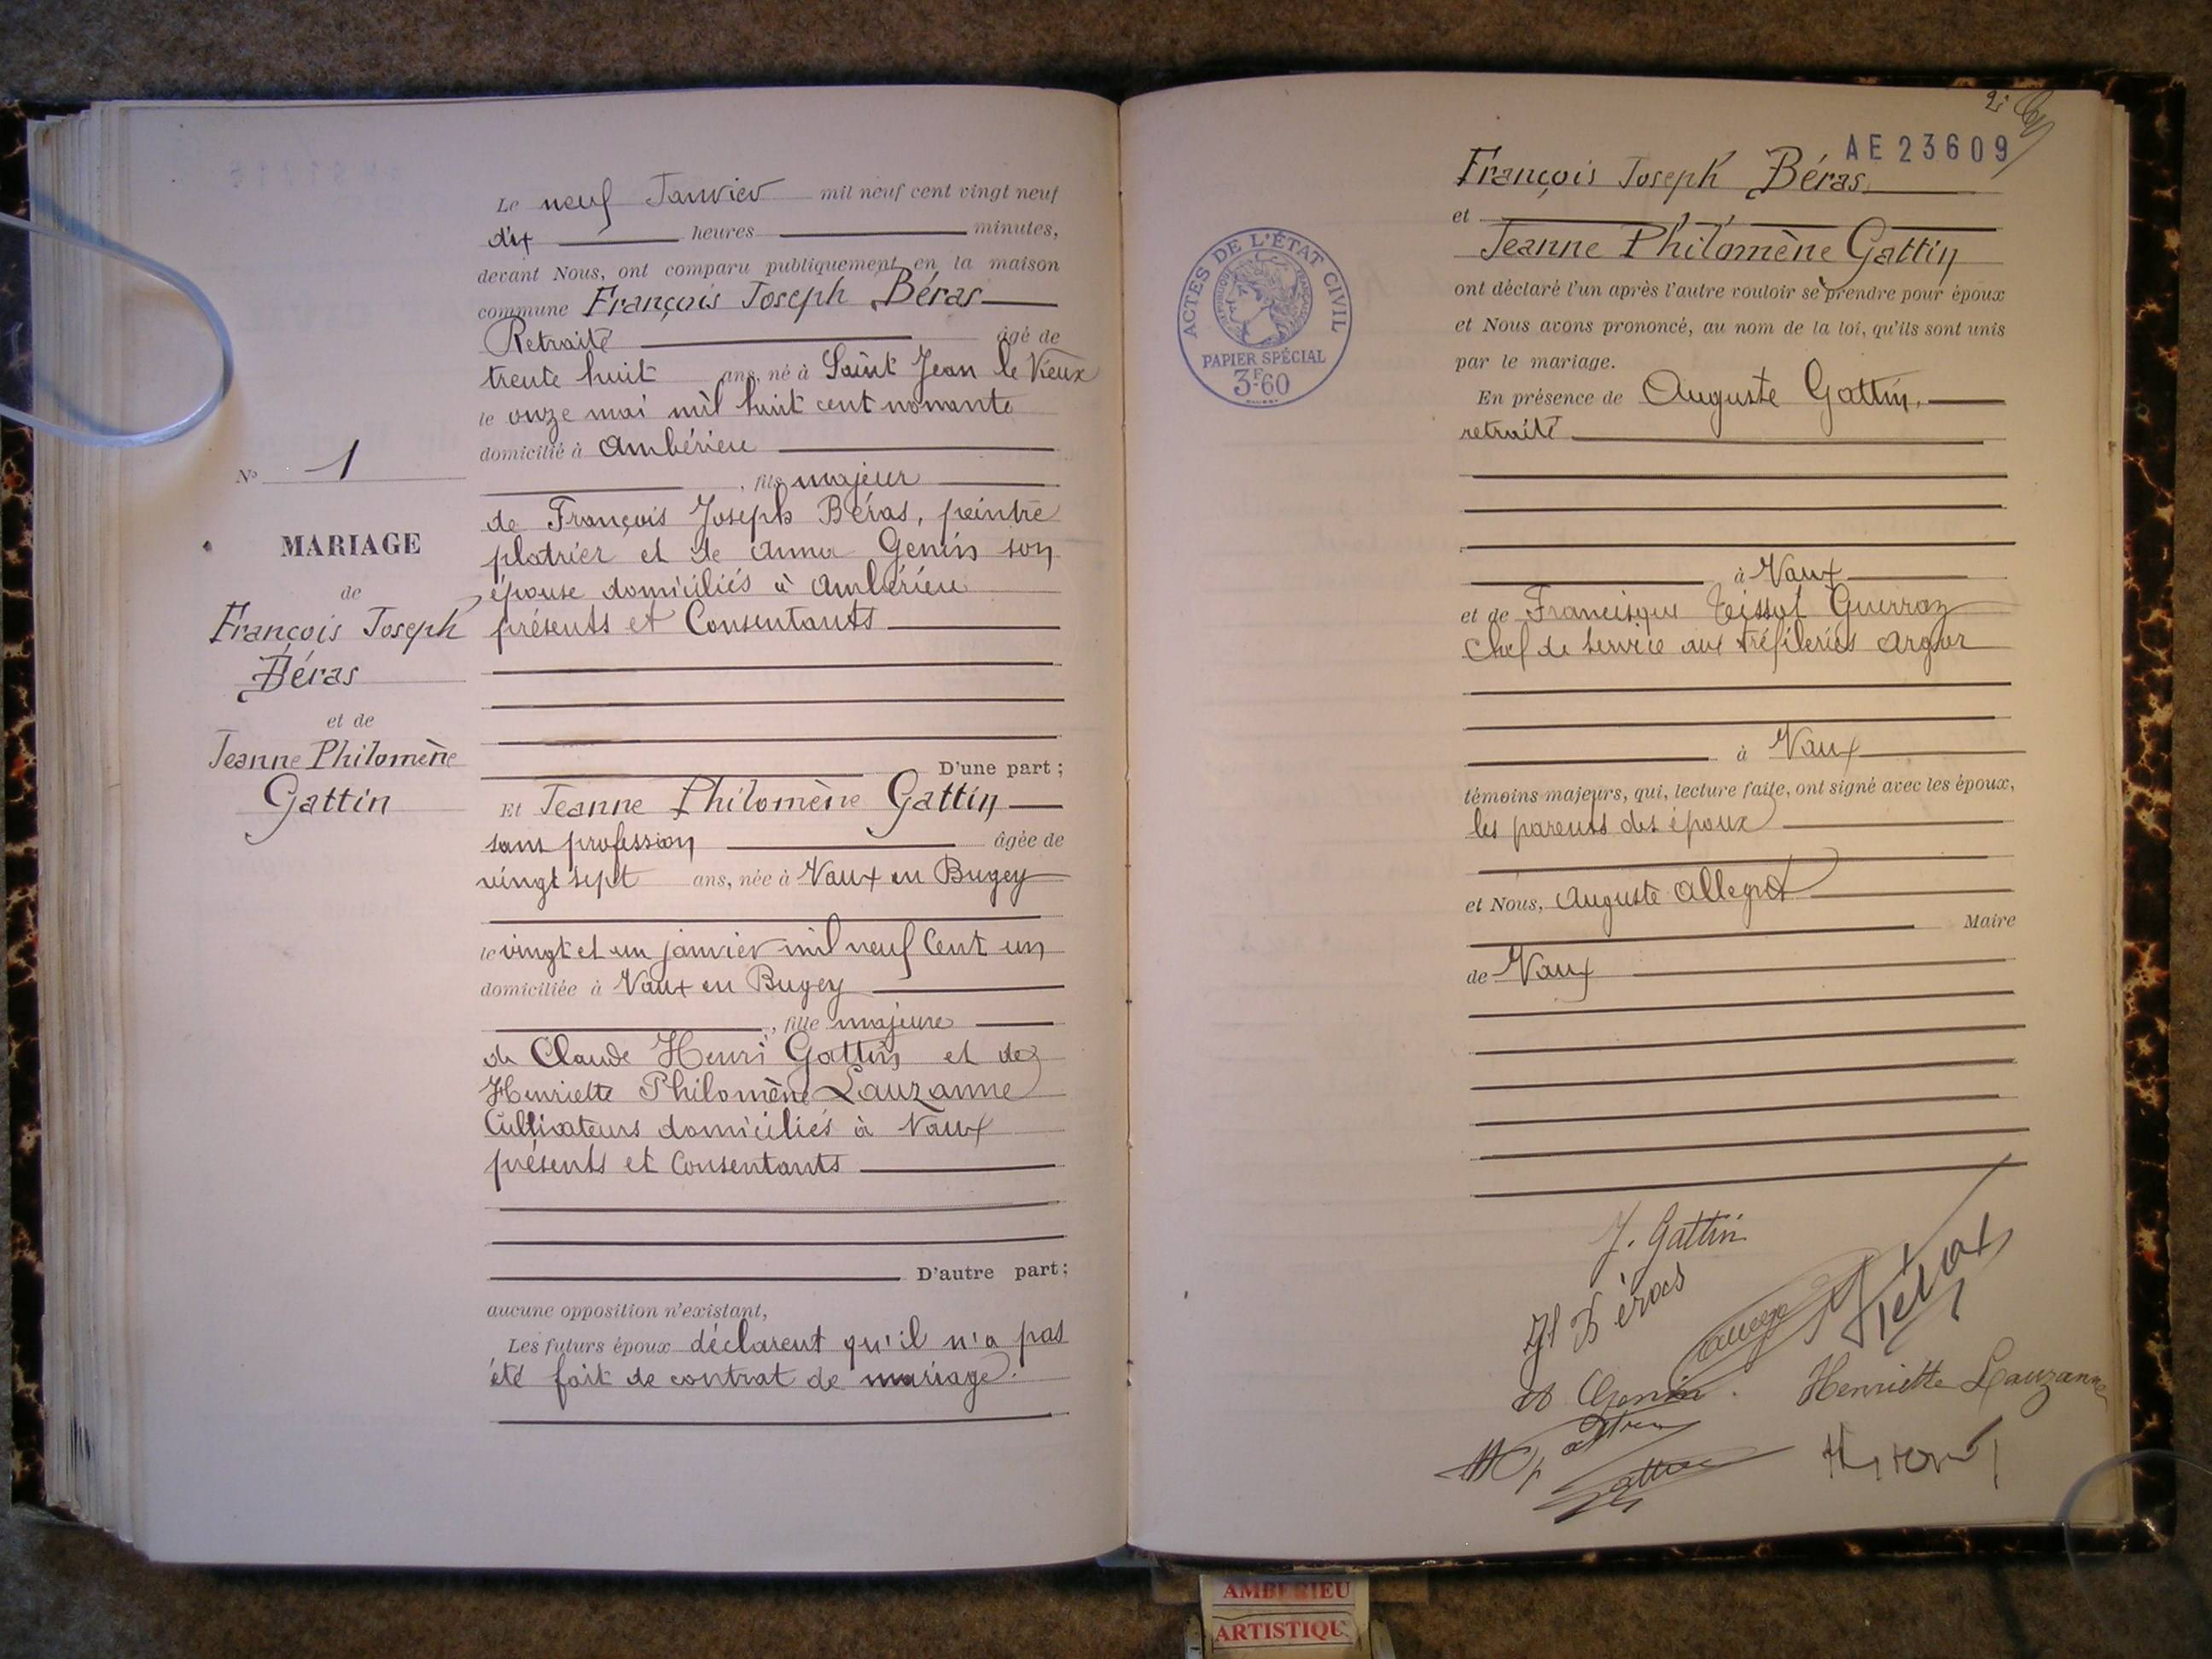 Le neuf Janvier mil neuf cent vingt neuf
dix heures minutes,
devant Nous, ont comparu publiquement en la maison
commune François Joseph Béras
Retraité âgé de
trente huit ans, né à Saint Jean le Vieux
le onze mai mil huit cent nonante
domicilié à Ambérieu
, fils majeur
de François Joseph Béras, peintre
platrier et de Anna Genin son
épouse domiciliés à Ambérieu
présents et Consentants
D'une part ;
Et Jeanne Philomène Gattin
sans profession âgée de
vingt sept ans, née à Vaux en Bugey
le vingt et un janvier mil neuf Cent un
domiciliée à Vaux en Bugey
, fille majeure
de Claude Henri Gattin et de
Henriette Philomène Lauzanne
Cultivateurs domiciliés à Vaux
présents et Consentants
D'autre part ;
aucune opposition n'existant,
Les futurs époux déclarent qu'il n'a pas
été fait de contrat de mariage.
N° 1
MARIAGE
de
François Joseph
Béras
et de
Jeanne Philomène
Gattin
2
AE 23609
ACTES DE L'ÉTAT CIVIL
RÉPUBLIQUE FRANÇAISE
PAPIER SPÉCIAL
3F.60
François Joseph Béras
et
Jeanne Philomène Gattin
ont déclaré l'un après l'autre vouloir se prendre pour époux
et Nous avons prononcé, au nom de la loi, qu'ils sont unis
par le mariage.
En présence de Auguste Gattin,
retraité
à Vaux
et de Francisque Tissot Guerraz
Chef de service aux tréfileries Argor
à Vaux
témoins majeurs, qui, lecture faite, ont signé avec les époux,
les parents des époux
et Nous, Auguste Allegrot
Maire
de Vaux
J. Gattin
Béras
Genin
Henriette Lauzanne
AMBERIEU
ARTISTIQU